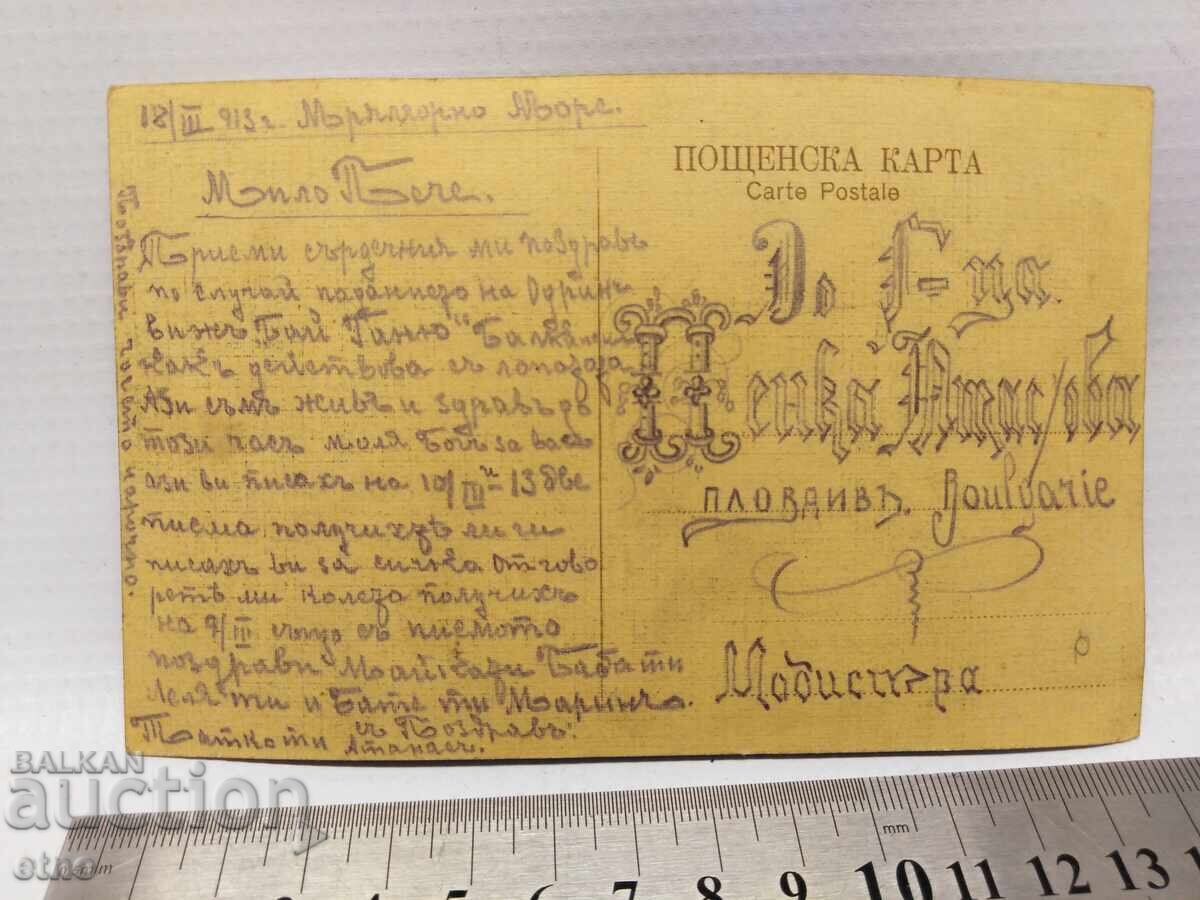 18/III 913 г. Мряморно Море.
Мило Пече.
Приеми сърдечния ми поздравъ
по случай паданнето на Одринъ
вижъ Бай Ганю "Балкански
какъ действова съ лопатата
Ази съмъ живъ и здравъ до
този часъ моля Богъ за васъ
ази ви писахъ на 10/III и 13 две
писма получихте ли ги
писахъ ви за сичко отгово
рете ми колета получихъ
на 9/III също съ писмото
поздрави Майка ти Баба ти
Леля ти и Бате ти Маринъ.
съ Поздравъ:
Татко ти Атанасъ.
Поздрави
ПОЩЕНСКА КАРТА
Carte Postale
До Г-ца
Пенка Атанасова
ПЛОВДИВЪ. Boulgarie
Модистра
BALKAN
auction
etno
mm
mm
4 5 6 7 8 9 10 11 12 13